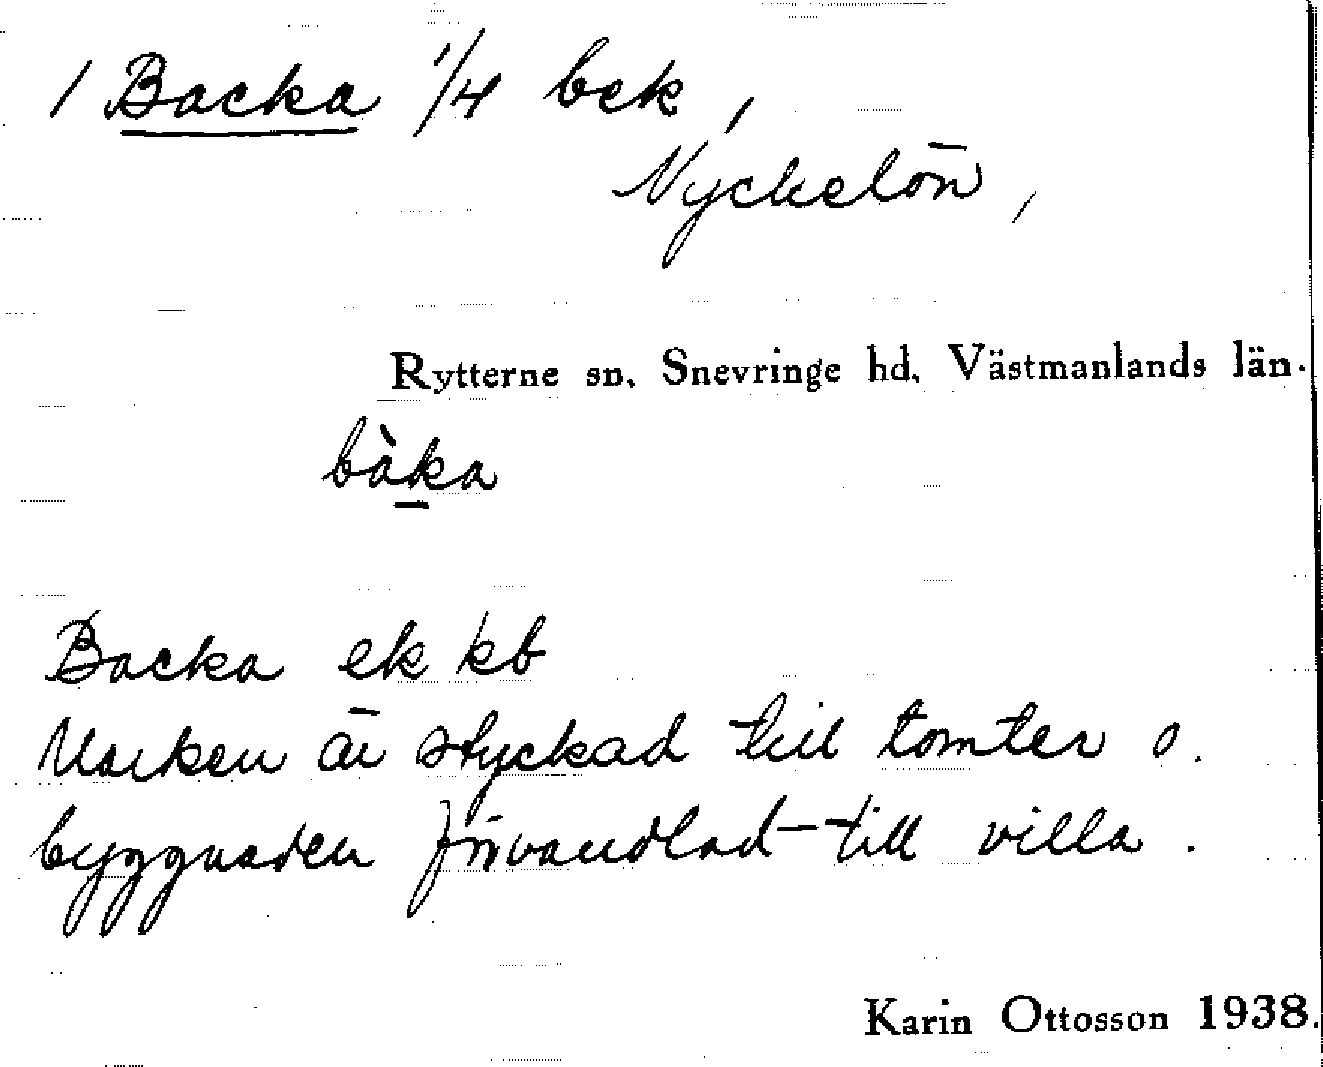 1 Backa 1/4 bek,
Nyckelön,
Rytterne sn. Snevringe hd. Västmanlands län.
bàka
Backa ek kb
Marken är styckad till tomter o.
byggnaden förvandlad till villa.
Karin Ottosson 1938.